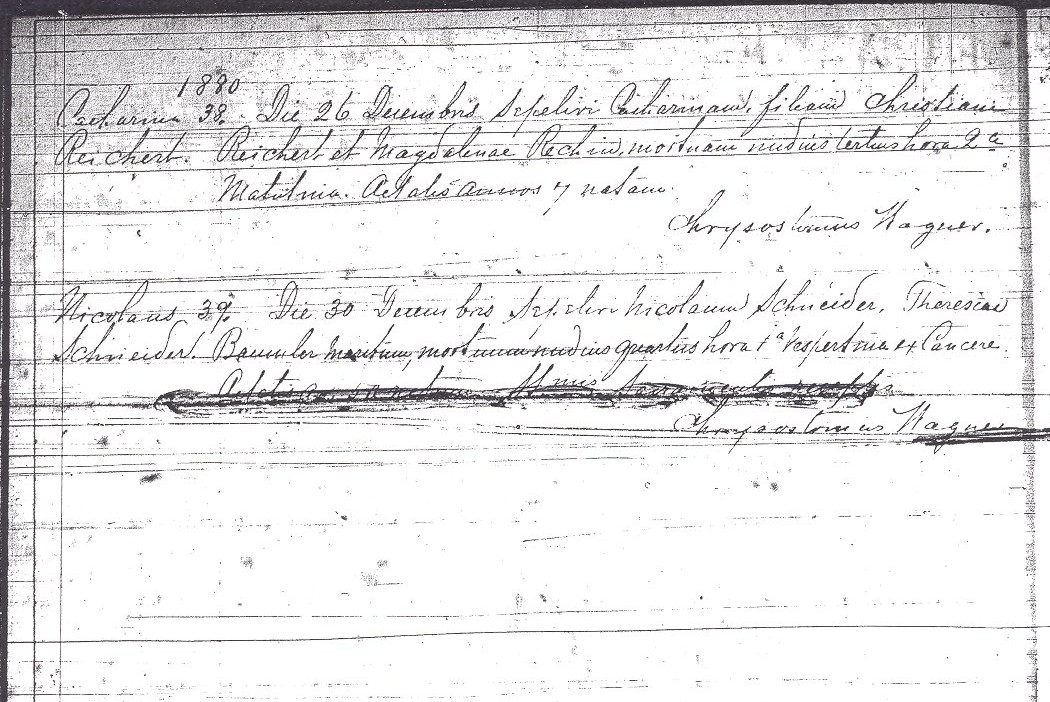 1880
Catharina 38. Die 26 Decembris sepelivi Catharinam, filiam Christiani
Reichert. Reichert et Magdalenae Rechin, mortuam nudius tertius hora 2a
Matutina. Aetatis annos 7 natam.
Chrysostomus Wagner.
Nicolaus 39. Die 30 Decembris sepelivi Nicolaum Schneider, Theresiae
Schneider. Baumler maritum, mortuum nudius quartus hora 1a Vespertina ex Cancere.
Aetatis
Chrysostomus Wagner